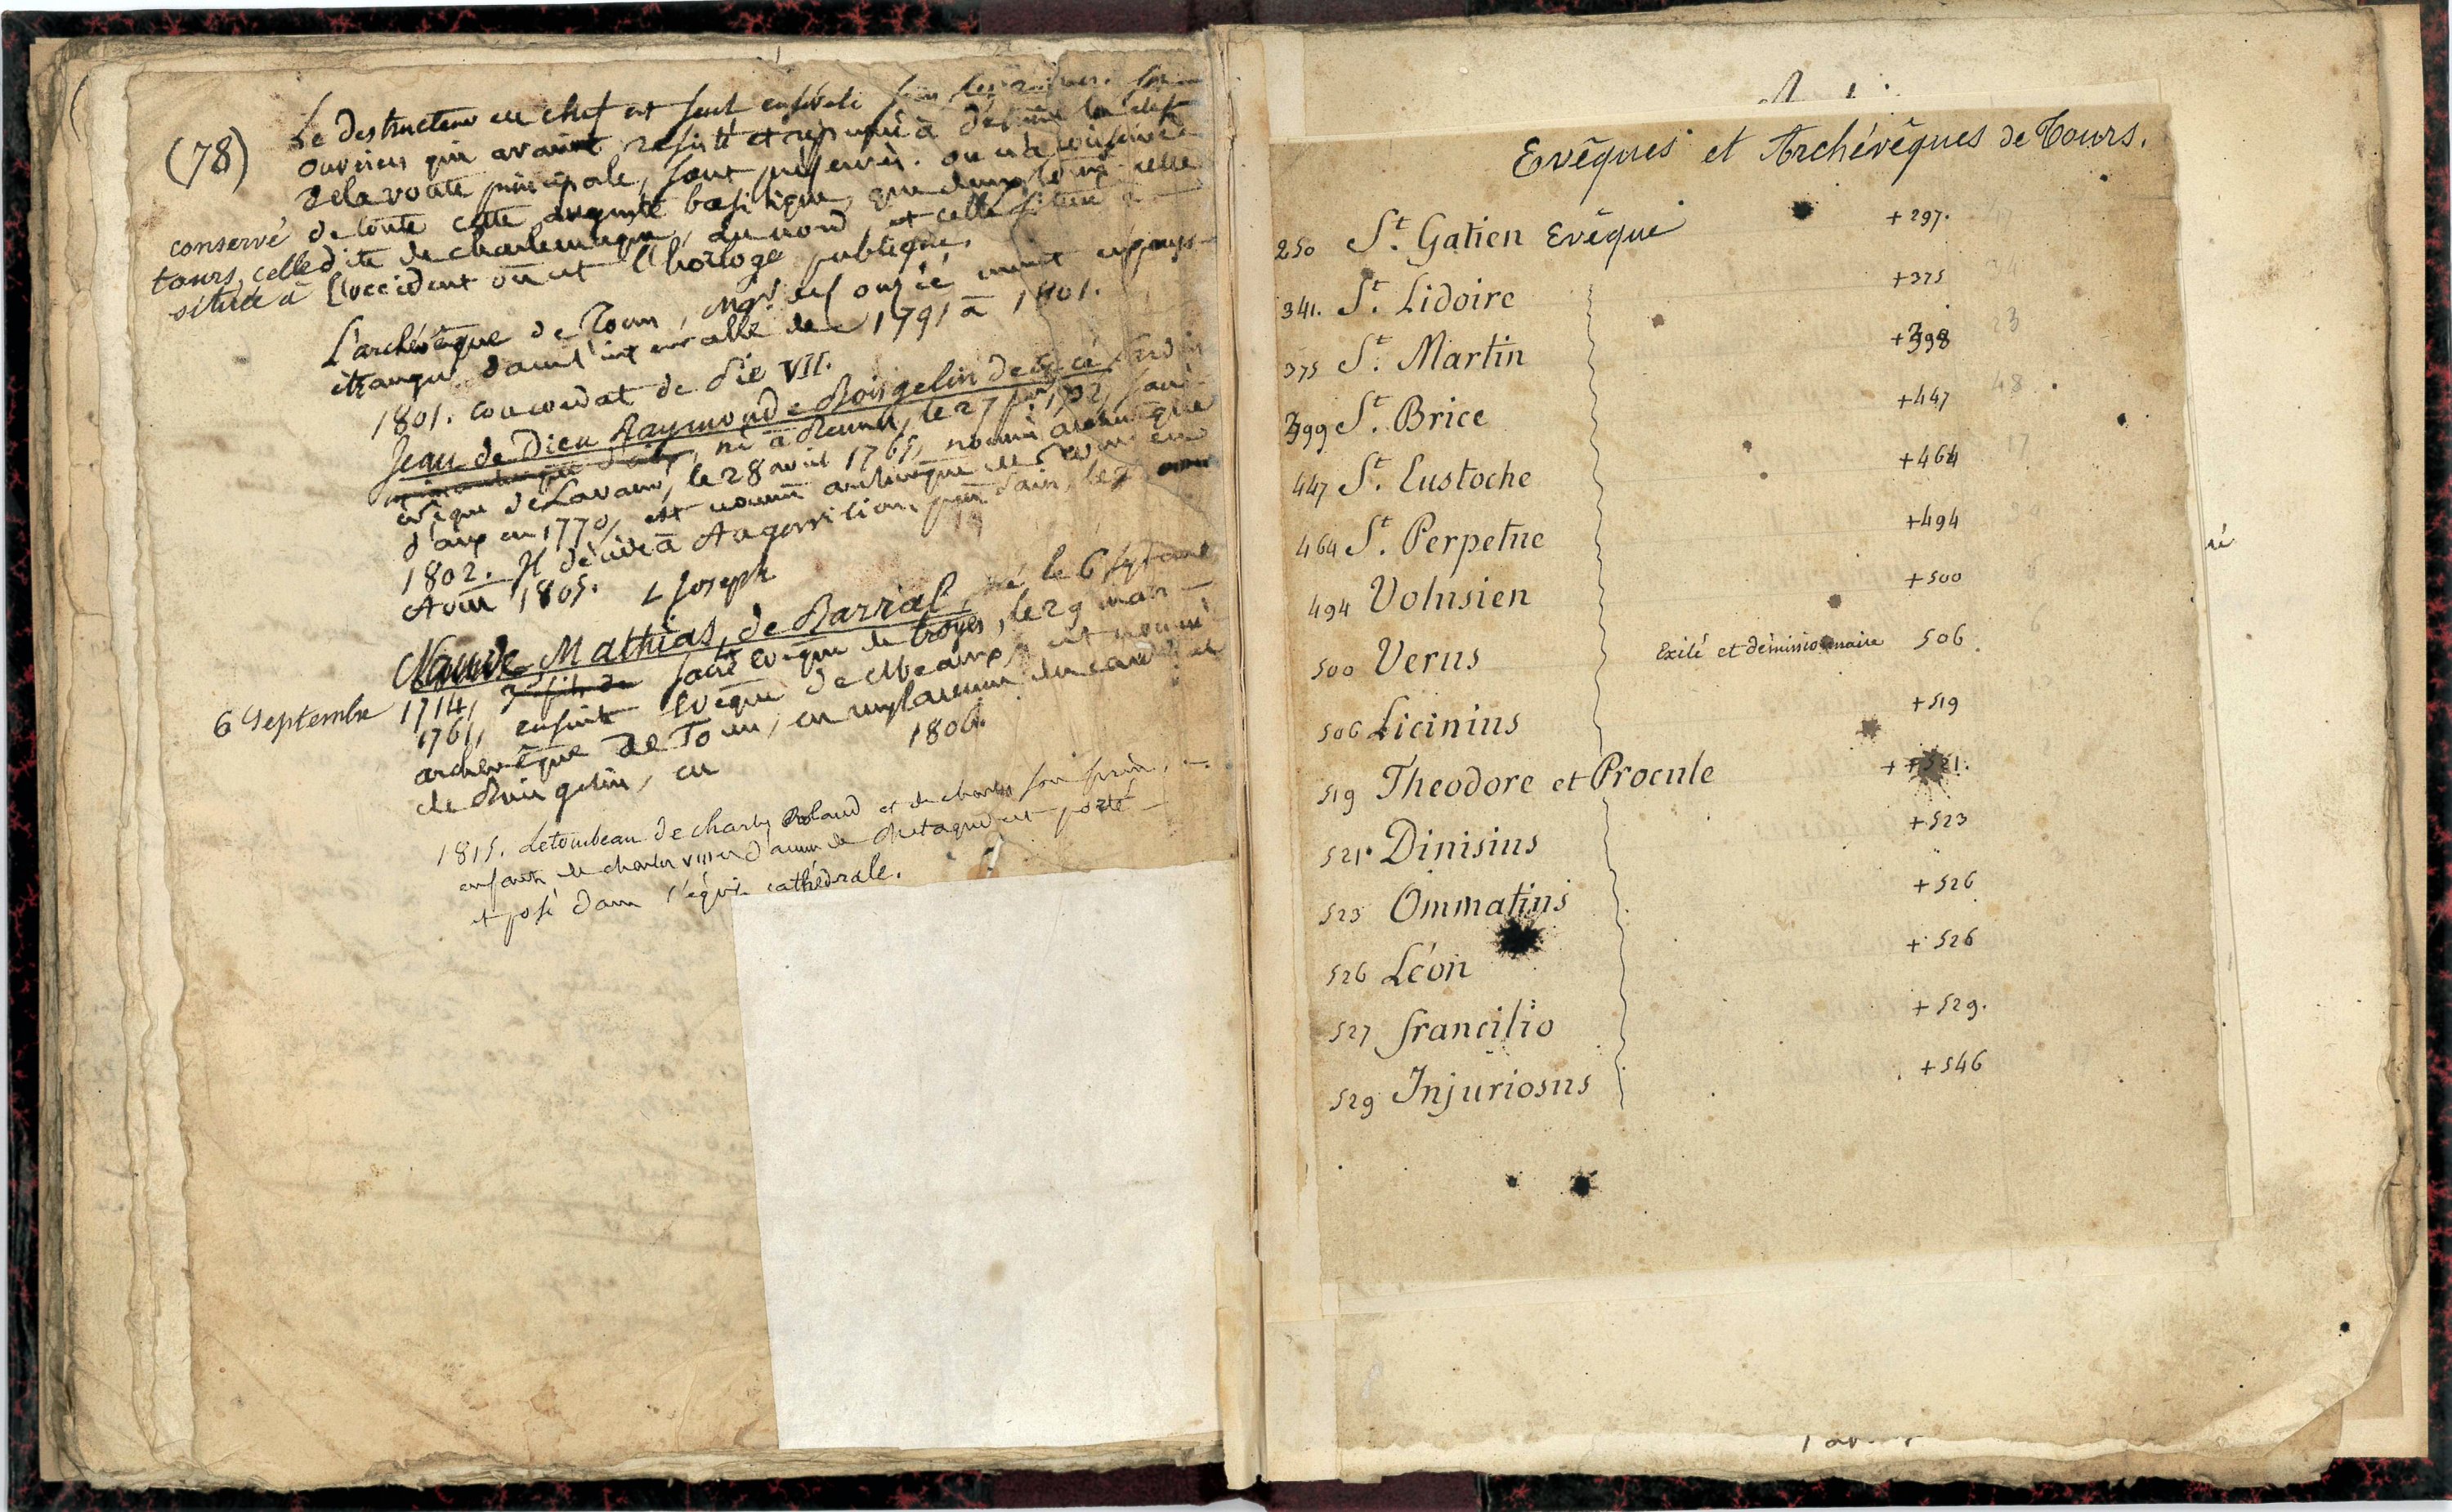 (78)
Le destructeur en chef est seul enseveli sous les ruines.
ouvriers qui avaient résisté et répugné à détruire la clef
de la voute principale, sont préservés. on n'a conservé
conservé de toute cette auguste basilique, que deux tours celle
tours, celle dite de charlemagne, au nord, et celle située à
située à l'occident où est l'horloge publique.
L'archévêque de Tours, Mgr. de Conzié meurt en pays
étranger dans l'intervalle de 1791 à 1801.
1801. Concordat de Pie VII.
Jean de Dieu Raymond de Boisgelin de Cucé
né à Rennes, le 27 1732, sacré
évêque de Lavaur, le 28 avril 1765, nommé archevêque
d'aix en 1770, est nommé archevêque de Tours en
1802. Il décède à Angervilliers près Paris, le
Aout 1805.
L Joseph
Mathias, de Barral, né le 6 septembre
6 Septembre 1714, sacré évêque de troyes, le 29 mars
1761, ensuite Evêque de Meaux, est nommé
archevêque de Tours, en remplacement du cardinal
de Boisgelin, en 1806.
1815. Le tombeau de charles Roland et de charles son frère,
enfants de charles VIII et d'anne de Bretagne est porté
et posé dans l'église cathédrale.
Evêques et Archévêques de Tours.
250 St. Gatien Evêque +297.
341. St. Lidoire +375
375 St. Martin +398
399 St. Brice +447
447 St. Eustoche +464
464 St. Perpetue +494
494 Volusien +500
500 Verus Exilé et démissionnaire 506.
506 Licinius +519
519 Theodore et Procule ++521.
521. Dinisius +523
523 Ommatius +526
526 Léon +526
527 francilio +529.
529 Injuriosus +546